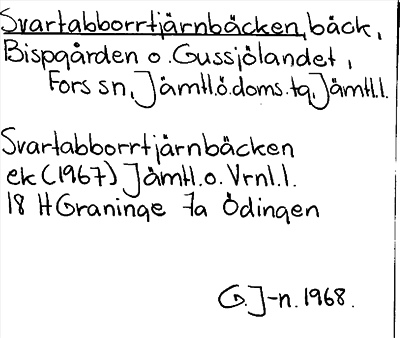 Svartabborrtjärnbäcken, bäck,
Bispgården o. Gussjölandet,
Fors sn, Jämtl.ö.doms.tg, Jämtl.l.
Svartabborrtjärnbäcken
ek (1967) Jämtl. o. Vrnl.l.
18 H Graninge 7a Ödingen
G. J-n. 1968.